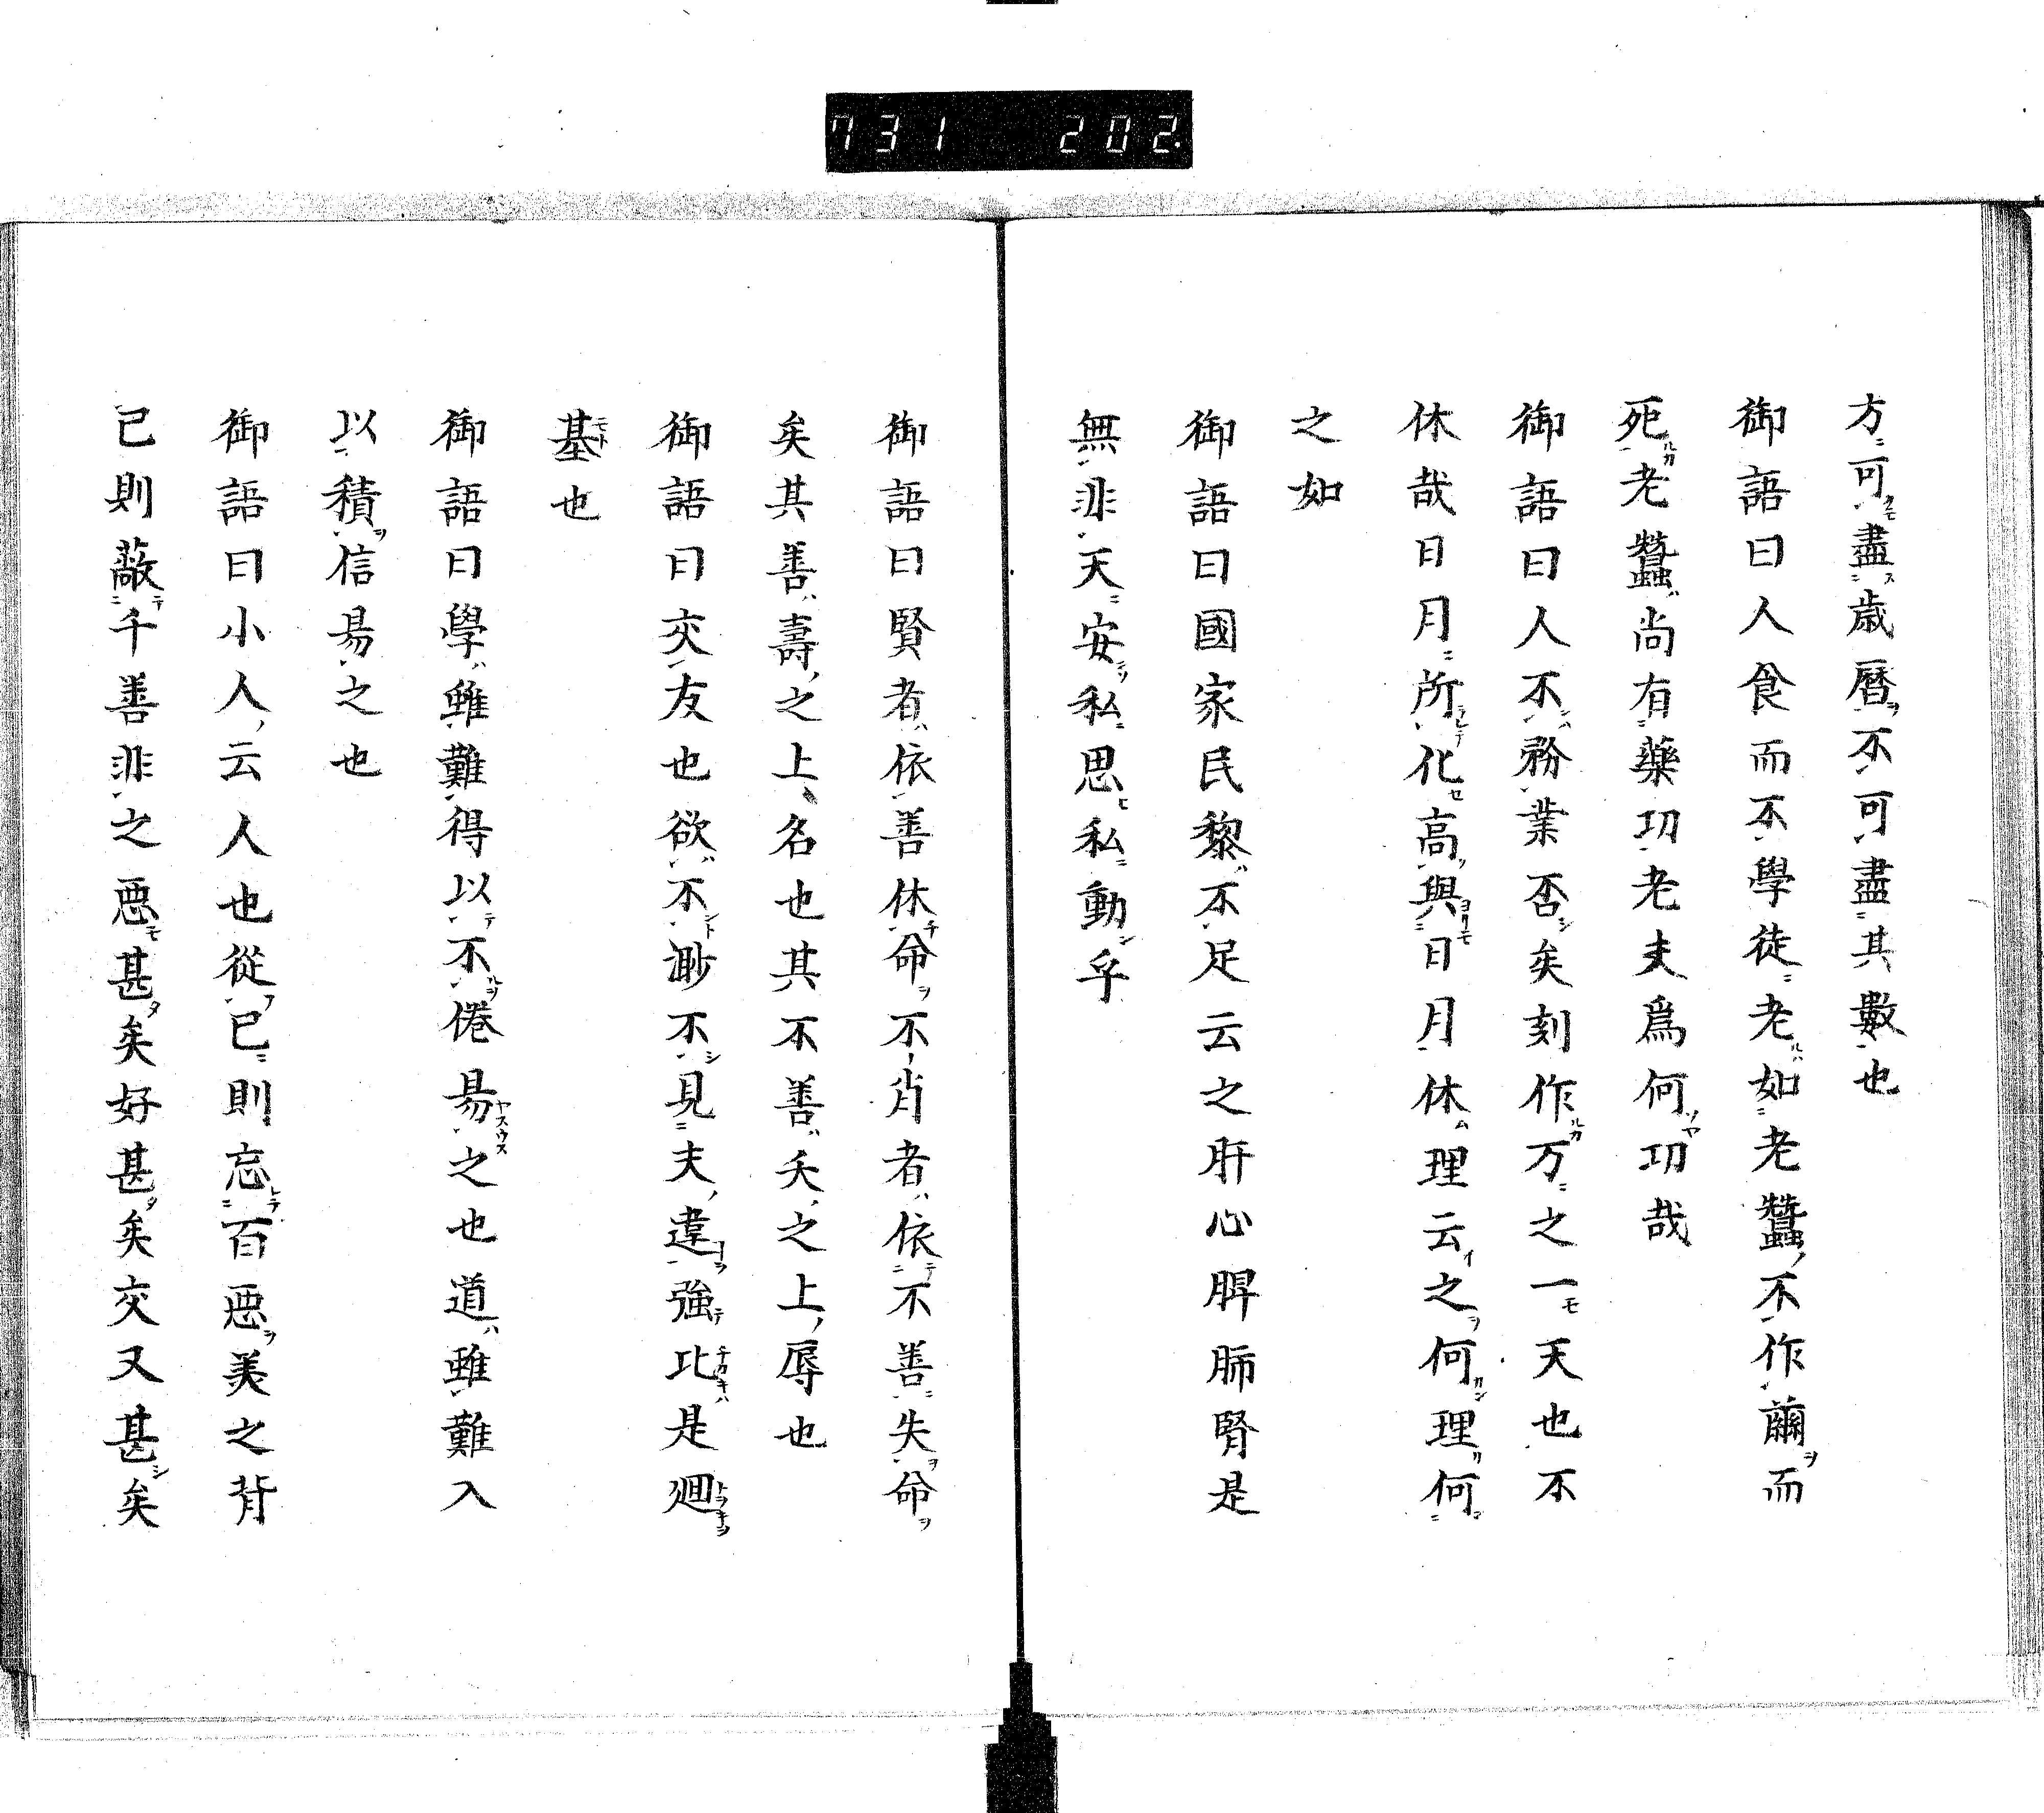 731 202.
方可盡歳暦不可盡其數也
御語曰人食而不學徒老如老蠶不作繭而
死老蠶尚有藥功老夫爲何功哉
御語曰人不務業否矣刻作万之一天也不
休哉日月所化高與日月休理云之何理何
之如
御語曰國家民黎不足云之肝心脾肺腎是
無非天安私思私動乎
御語曰賢者依善休命不肖者依不善失命
矣其善壽之上名也其不善夭之上辱也
御語曰交友也欲不渺不見夫違強比是廻
基也
御語曰學雖難得以不倦易之也道雖難入
以積信易之也
御語曰小人云人也從已則忘百悪美之背
已則蔽千善非之悪甚矣好甚矣交又甚矣